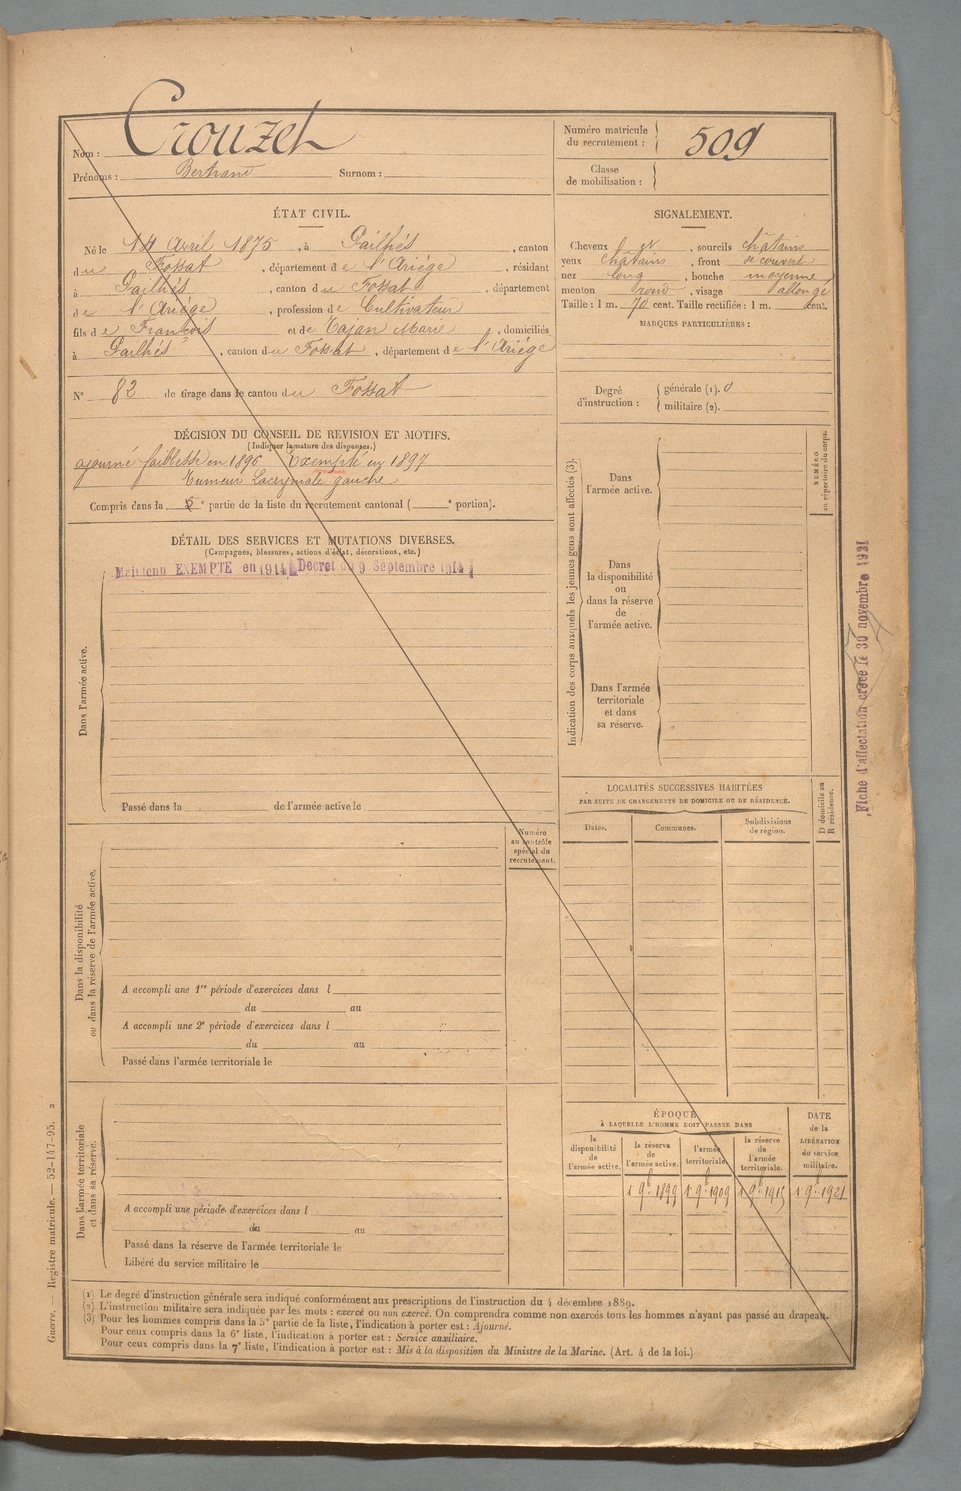 Nom : Crouzet
Prénoms : Bertrand Surnom :
Numéro matricule du recrutement : 509
Classe de mobilisation :
ÉTAT CIVIL.
Né le 14 Avril 1875, à Pailhés, canton
du Fossat, département de l'Ariége, résidant
à Pailhés, canton du Fossat, département
de l'Ariége, profession de Cultivateur
fils de François et de Tajan Marie, domiciliés
à Pailhés, canton du Fossat, département de l'Ariége
N° 82 de tirage dans le canton du Fossat
SIGNALEMENT.
Cheveux et, sourcils châtains
yeux châtains, front découvert
nez long, bouche moyenne
menton rond, visage allongé
Taille : 1 m. 70 cent. Taille rectifiée : 1 m. cent.
MARQUES PARTICULIÈRES :
Degré d'instruction : générale (1). 0
militaire (2).
DÉCISION DU CONSEIL DE REVISION ET MOTIFS.
(Indiquer la nature des dispenses.)
ajourné faiblesse en 1896 Exempté en 1897
Tumeur Lacrymale gauche
Compris dans la 5e partie de la liste du recrutement cantonal ( e portion).
DÉTAIL DES SERVICES ET MUTATIONS DIVERSES.
(Campagnes, blessures, actions d'éclat, décorations, etc.)
Maintenu EXEMPTE en 1914 Décret du 9 Septembre 1914
Dans l'armée active.
Passé dans la de l'armée active le
Numéro au contrôle spécial du recrutement.
Dans la disponibilité ou dans la réserve de l'armée active.
A accompli une 1re période d'exercices dans l
du au
A accompli une 2e période d'exercices dans l
du au
Passé dans l'armée territoriale le
Dans l'armée territoriale et dans sa réserve.
A accompli une période d'exercices dans l
du au
Passé dans la réserve de l'armée territoriale le
Libéré du service militaire le
Indication des corps auxquels les jeunes gens sont affectés (3).
NUMÉRO au répertoire du corps.
Dans l'armée active.
Dans la disponibilité ou dans la réserve de l'armée active.
Dans l'armée territoriale et dans sa réserve.
LOCALITÉS SUCCESSIVES HABITÉES
PAR SUITE DE CHANGEMENTS DE DOMICILE OU DE RÉSIDENCE.
Dates. Communes. Subdivisions de région. D domicile ou R résidence.
ÉPOQUE
À LAQUELLE L'HOMME DOIT PASSER DANS
la disponibilité de l'armée active. la réserve de l'armée active. l'armée territoriale. la réserve de l'armée territoriale. DATE de la LIBÉRATION du service militaire.
1 9b 1899 1 9b 1909 1 9b 1915 1 9b 1921
Fiche d'affectation créée le 30 novembre 1921
(1) Le degré d'instruction générale sera indiqué conformément aux prescriptions de l'instruction du 4 décembre 1889.
(2) L'instruction militaire sera indiquée par les mots : exercé ou non exercé. On comprendra comme non exercés tous les hommes n'ayant pas passé au drapeau.
(3) Pour les hommes compris dans la 5e partie de la liste, l'indication à porter est : Ajourné.
Pour ceux compris dans la 6e liste, l'indication à porter est : Service auxiliaire.
Pour ceux compris dans la 7e liste, l'indication à porter est : Mis à la disposition du Ministre de la Marine. (Art. 4 de la loi.)
Guerre. — Registre matricule. — 52-147-95. 2